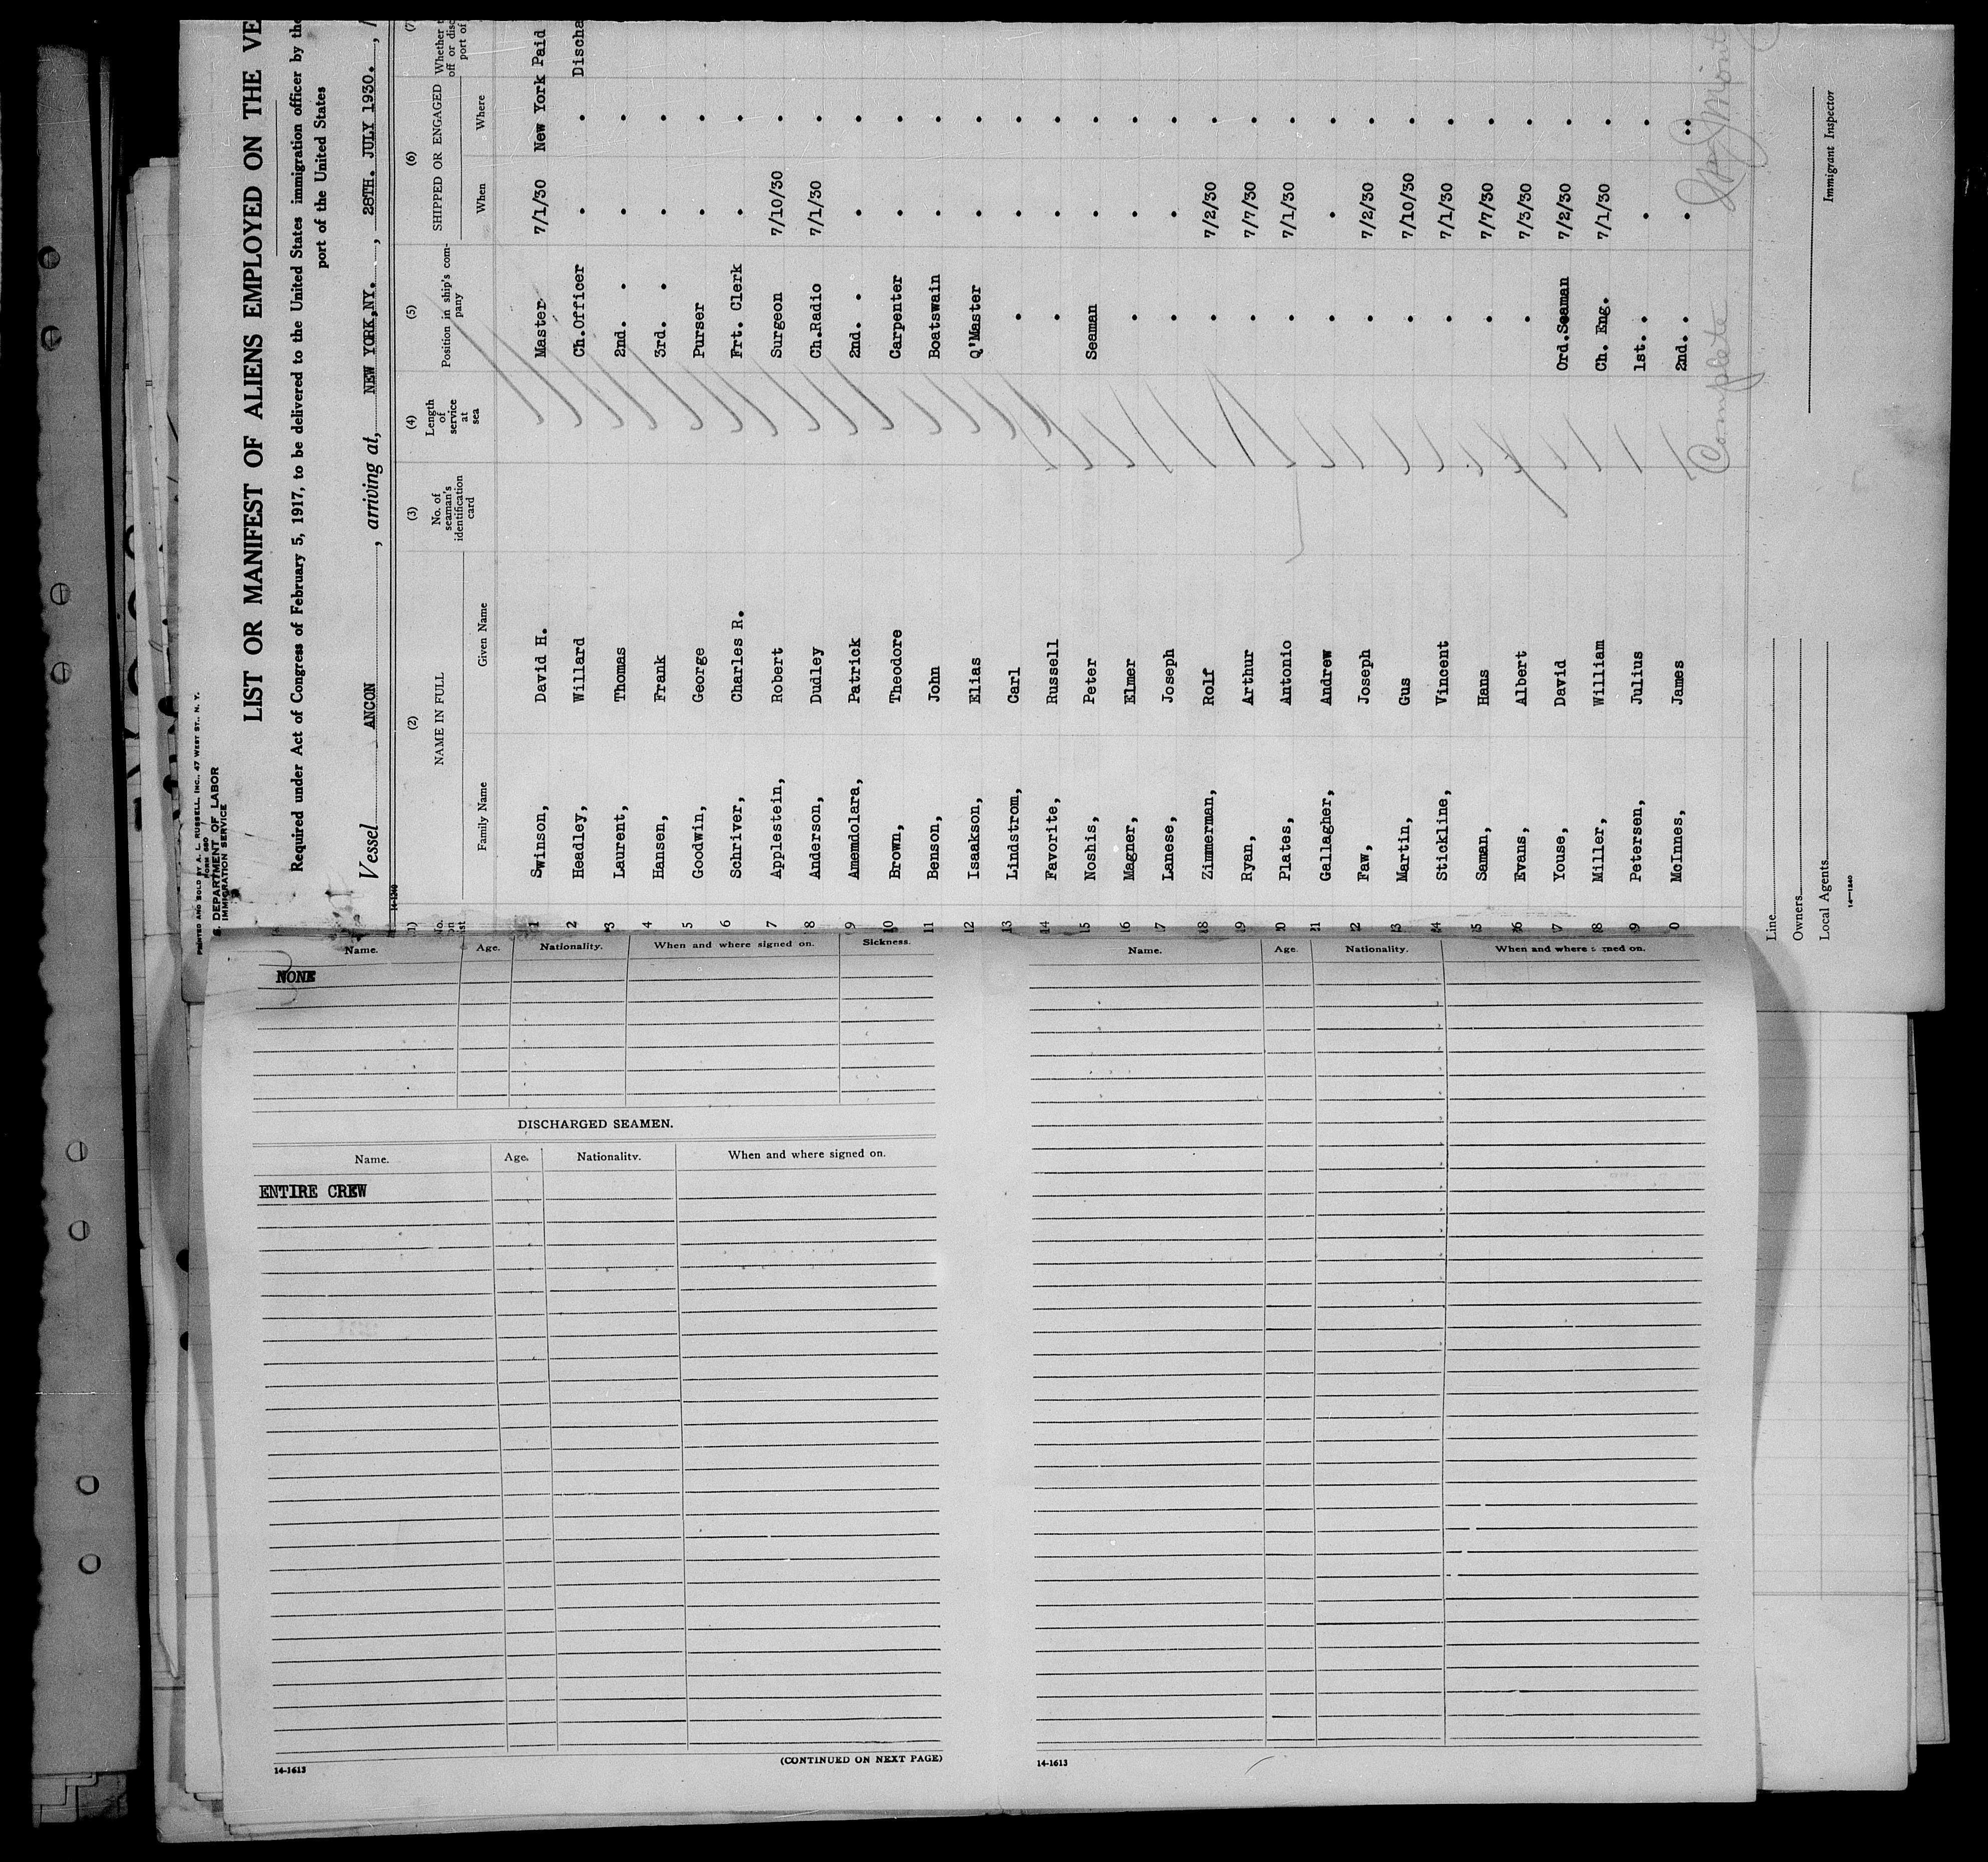 PRINTED AND SOLD BY A. L. RUSSELL, INC., 47 WEST ST., N. Y.
FORM 680
S. DEPARTMENT OF LABOR
IMMIGRATION SERVICE
LIST OR MANIFEST OF ALIENS EMPLOYED ON THE VE
Required under Act of Congress of February 5, 1917, to be delivered to the United States immigration officer by the
port of the United States
Vessel ANCON , arriving at, NEW YORK,NY. , 28TH. JULY 1930. ,
14-1240
(1) (2) (3) (4) (5) (6) (7)
No. on NAME IN FULL No. of seaman's identification card Length of service at sea Position in ship's company SHIPPED OR ENGAGED Whether
off or disc
port of
Family Name Given Name When Where
1 Swinson, David H. Master 7/1/30 New York Paid
2 Headley, Willard Ch.Officer " " Discha
3 Laurent, Thomas 2nd. " " "
4 Hansen, Frank 3rd. " " "
5 Goodwin, George Purser " "
6 Schriver, Charles R. Frt. Clerk " "
7 Applestein, Robert Surgeon 7/10/30 "
8 Anderson, Dudley Ch.Radio 7/1/30 "
9 Amemdolara, Patrick 2nd. " " "
10 Brown, Theodore Carpenter " "
11 Benson, John Boatswain " "
12 Isaakson, Elias Q'Master " "
13 Lindstrom, Carl " " "
14 Favorite, Russell " " "
15 Noshis, Peter Seaman " "
16 Magner, Elmer " " "
17 Lanese, Joseph " " "
18 Zimmerman, Rolf " 7/2/30 "
19 Ryan, Arthur " 7/7/30 "
20 Plates, Antonio " 7/1/30 "
21 Gallagher, Andrew " " "
22 Faw, Joseph " 7/2/30 "
23 Martin, Gus " 7/10/30 "
24 Stickline, Vincent " 7/1/30 "
25 Saman, Hans " 7/7/30 "
26 Evans, Albert " 7/3/30 "
27 Youse, David Ord.Seaman 7/2/30 "
28 Miller, William Ch. Eng. 7/1/30 "
29 Petersen, Julius 1st. " " "
30 McInnes, James 2nd. " " "
Complete
Line
Owners
Local Agents
Immigrant Inspector
14-1240
Name. Age. Nationality. When and where signed on. Sickness.
NONE
DISCHARGED SEAMEN.
Name. Age. Nationality. When and where signed on.
ENTIRE CREW
(CONTINUED ON NEXT PAGE)
14-1613
Name. Age. Nationality. When and where signed on.
14-1613